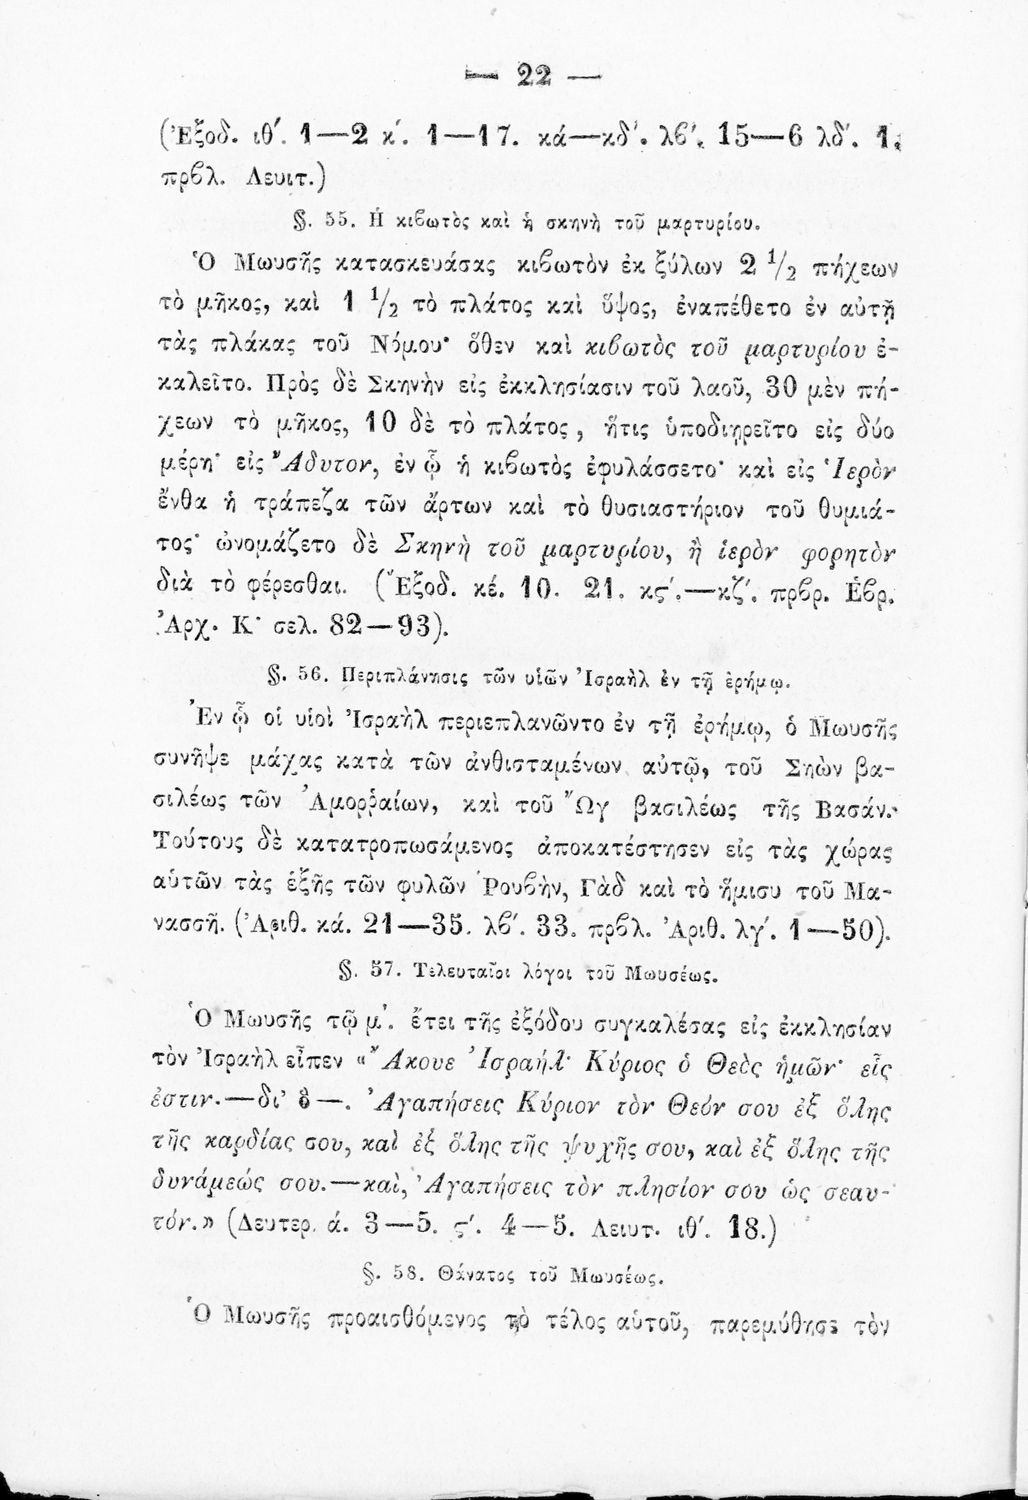 — 22 —
(Ἐξοδ. ιθ΄. 1—2 κ΄. 1—17. κά—κδ΄. λβ΄. 15—6 λδ΄. 1.
πρβλ. Λευιτ.)
§. 55. Ἡ κιβωτὸς καὶ ἡ σκηνὴ τοῦ μαρτυρίου.
Ὁ Μωυσῆς κατασκευάσας κιβωτὸν ἐκ ξύλων 2 1/2 πήχεων
τὸ μῆκος, καὶ 1 1/2 τὸ πλάτος καὶ ὕψος, ἐναπέθετο ἐν αὐτῇ
τὰς πλάκας τοῦ Νόμου· ὅθεν καὶ κιβωτὸς τοῦ μαρτυρίου ἐ-
καλεῖτο. Πρὸς δὲ Σκηνὴν εἰς ἐκκλησίασιν τοῦ λαοῦ, 30 μὲν πή-
χεων τὸ μῆκος, 10 δὲ τὸ πλάτος, ἥτις ὑποδιῃρεῖτο εἰς δύο
μέρη· εἰς Ἄδυτον, ἐν ᾧ ἡ κιβωτὸς ἐφυλάσσετο· καὶ εἰς Ἱερὸν
ἔνθα ἡ τράπεζα τῶν ἄρτων καὶ τὸ θυσιαστήριον τοῦ θυμιά-
τος· ὠνομάζετο δὲ Σκηνὴ τοῦ μαρτυρίου, ἢ ἱερὸν φορητὸν
διὰ τὸ φέρεσθαι. (Ἔξοδ. κέ. 10. 21. κϛ΄.—κζ΄. πρβρ. Ἑβρ.
Ἀρχ. Κ· σελ. 82—93).
§. 56. Περιπλάνησις τῶν υἱῶν Ἰσραὴλ ἐν τῇ ἐρήμῳ.
Ἐν ᾧ οἱ υἱοὶ Ἰσραὴλ περιεπλανῶντο ἐν τῇ ἐρήμῳ, ὁ Μωυσῆς
συνῆψε μάχας κατὰ τῶν ἀνθισταμένων αὐτῷ, τοῦ Σηὼν βα-
σιλέως τῶν Ἀμοῤῥαίων, καὶ τοῦ Ὢγ βασιλέως τῆς Βασάν.
Τούτους δὲ κατατροπωσάμενος ἀποκατέστησεν εἰς τὰς χώρας
αὐτῶν τὰς ἑξῆς τῶν φυλῶν Ῥουβὴν, Γὰδ καὶ τὸ ἥμισυ τοῦ Μα-
νασσῆ. (Ἀριθ. κά. 21—35. λβ΄. 33. πρβλ. Ἀριθ. λγ΄. 1—50).
§. 57. Τελευταῖοι λόγοι τοῦ Μωυσέως.
Ὁ Μωυσῆς τῷ μ΄. ἔτει τῆς ἐξόδου συγκαλέσας εἰς ἐκκλησίαν
τὸν Ἰσραὴλ εἶπεν «Ἄκουε Ἰσραήλ· Κύριος ὁ Θεὸς ἡμῶν· εἷς
ἐστιν.—δι' ὃ—. Ἀγαπήσεις Κύριον τὸν Θεόν σου ἐξ ὅλης
τῆς καρδίας σου, καὶ ἐξ ὅλης τῆς ψυχῆς σου, καὶ ἐξ ὅλης τῆς
δυνάμεώς σου.—καὶ, Ἀγαπήσεις τὸν πλησίον σου ὡς σεαυ-
τόν.» (Δευτερ. ά. 3—5. ϛ΄. 4—5. Λειυτ. ιθ΄. 18.)
§. 58. Θάνατος τοῦ Μωυσέως.
Ὁ Μωυσῆς προαισθόμενος τὸ τέλος αὑτοῦ, παρεμύθησε τὸν